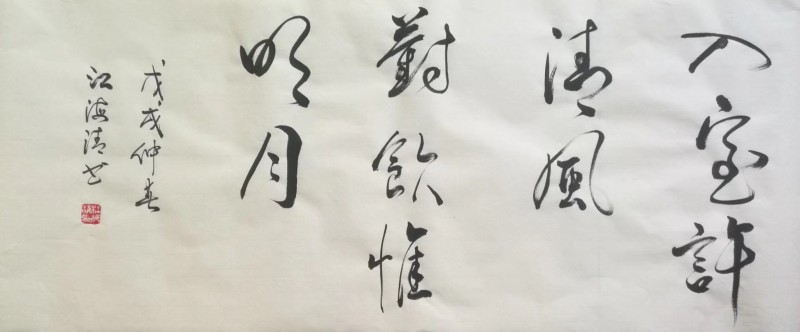 入室許
清風
對飲惟
明月
戊戌仲春
江海清书